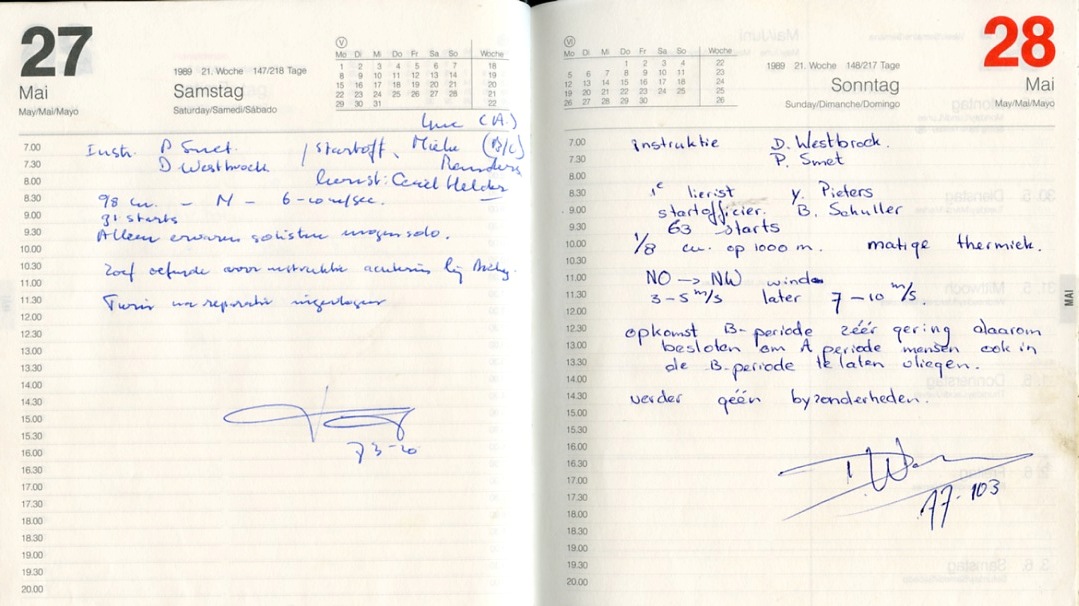 27
Mai
May/Mai/Mayo
1989 21. Woche 147/218 Tage
Samstag
Saturday/Samedi/Sábado
V
Mo Di Mi Do Fr Sa So Woche
1 2 3 4 5 6 7 18
8 9 10 11 12 13 14 19
15 16 17 18 19 20 21 20
22 23 24 25 26 27 28 21
29 30 31 22
Luc (A.)
Instr. P Smet. / startoff. Mieke (B/C)
D Westbroek Reinders
lierist: Ceciel Helder
7.00
7.30
8.00
8.30
9.00
9.30
10.00
10.30
11.00
11.30
12.00
12.30
13.00
13.30
14.00
14.30
15.00
15.30
16.00
16.30
17.00
17.30
18.00
18.30
19.00
19.30
20.00
- N - 6-10 m/sec.
31 starts
Alleen ervaren solisten mogen solo.
Zoef oefende voor instruktie
Twin na reparatie ingevlogen
28
Mai
May/Mai/Mayo
1989 21. Woche 148/217 Tage
Sonntag
Sunday/Dimanche/Domingo
VI
Mo Di Mi Do Fr Sa So Woche
1 2 3 4 22
5 6 7 8 9 10 11 23
12 13 14 15 16 17 18 24
19 20 21 22 23 24 25 25
26 27 28 29 30 26
7.00
7.30
8.00
8.30
9.00
9.30
10.00
10.30
11.00
11.30
12.00
12.30
13.00
13.30
14.00
14.30
15.00
15.30
16.00
16.30
17.00
17.30
18.00
18.30
19.00
19.30
20.00
instruktie D. Westbroek.
P. Smet
1e lierist Y. Pieters
startofficier. B. Schuller
63 starts
1/8 cu. op 1000 m. matige thermiek.
NO -> NW wind
3-5 m/s later 7-10 m/s.
opkomst B-periode zéér gering daarom
besloten om A periode mensen ook in
de B-periode te laten vliegen.
verder géén byzonderheden.
17-103
MAI